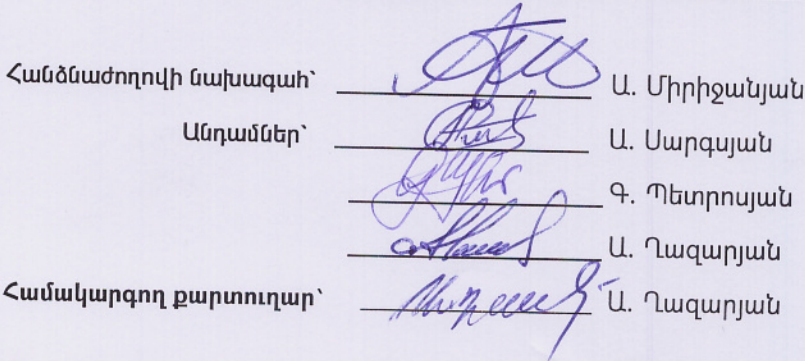 Հանձնաժողովի նախագահ՝ Ա. Միրիջանյան
Անդամներ՝ Ա. Սարգսյան
Գ. Պետրոսյան
Ա. Ղազարյան
Համակարգող քարտուղար՝ Ա. Ղազարյան